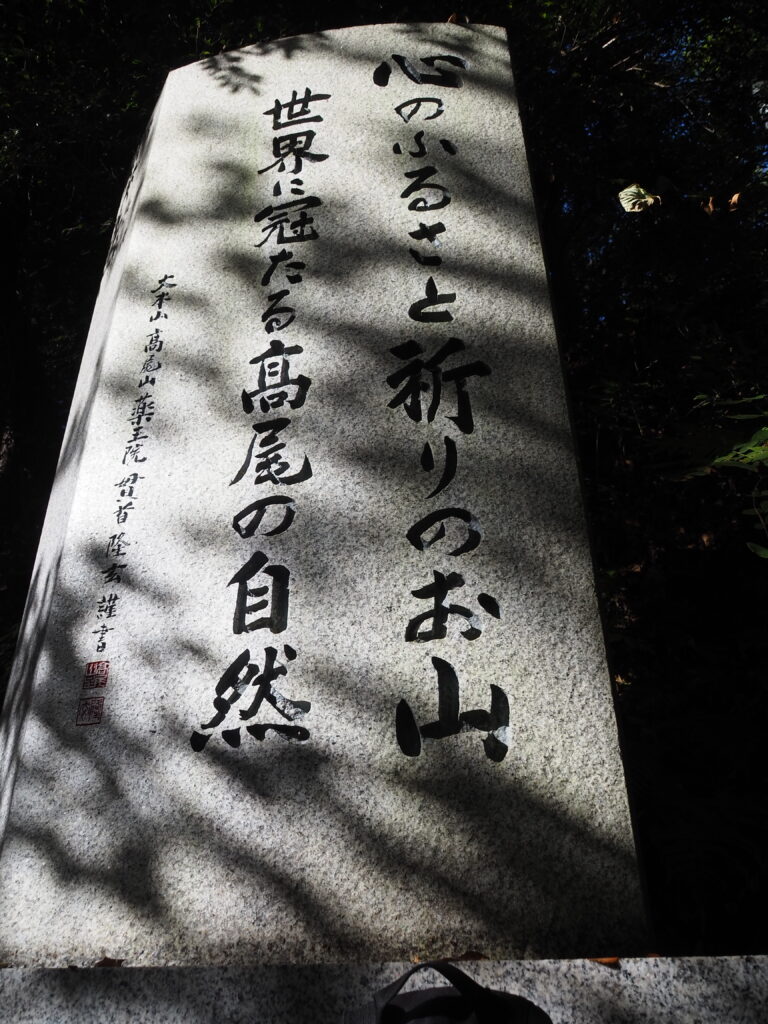 心のふるさと祈りのお山
世界に冠たる高尾の自然
大本山 髙尾山 薬王院 貫首 隆玄 謹書